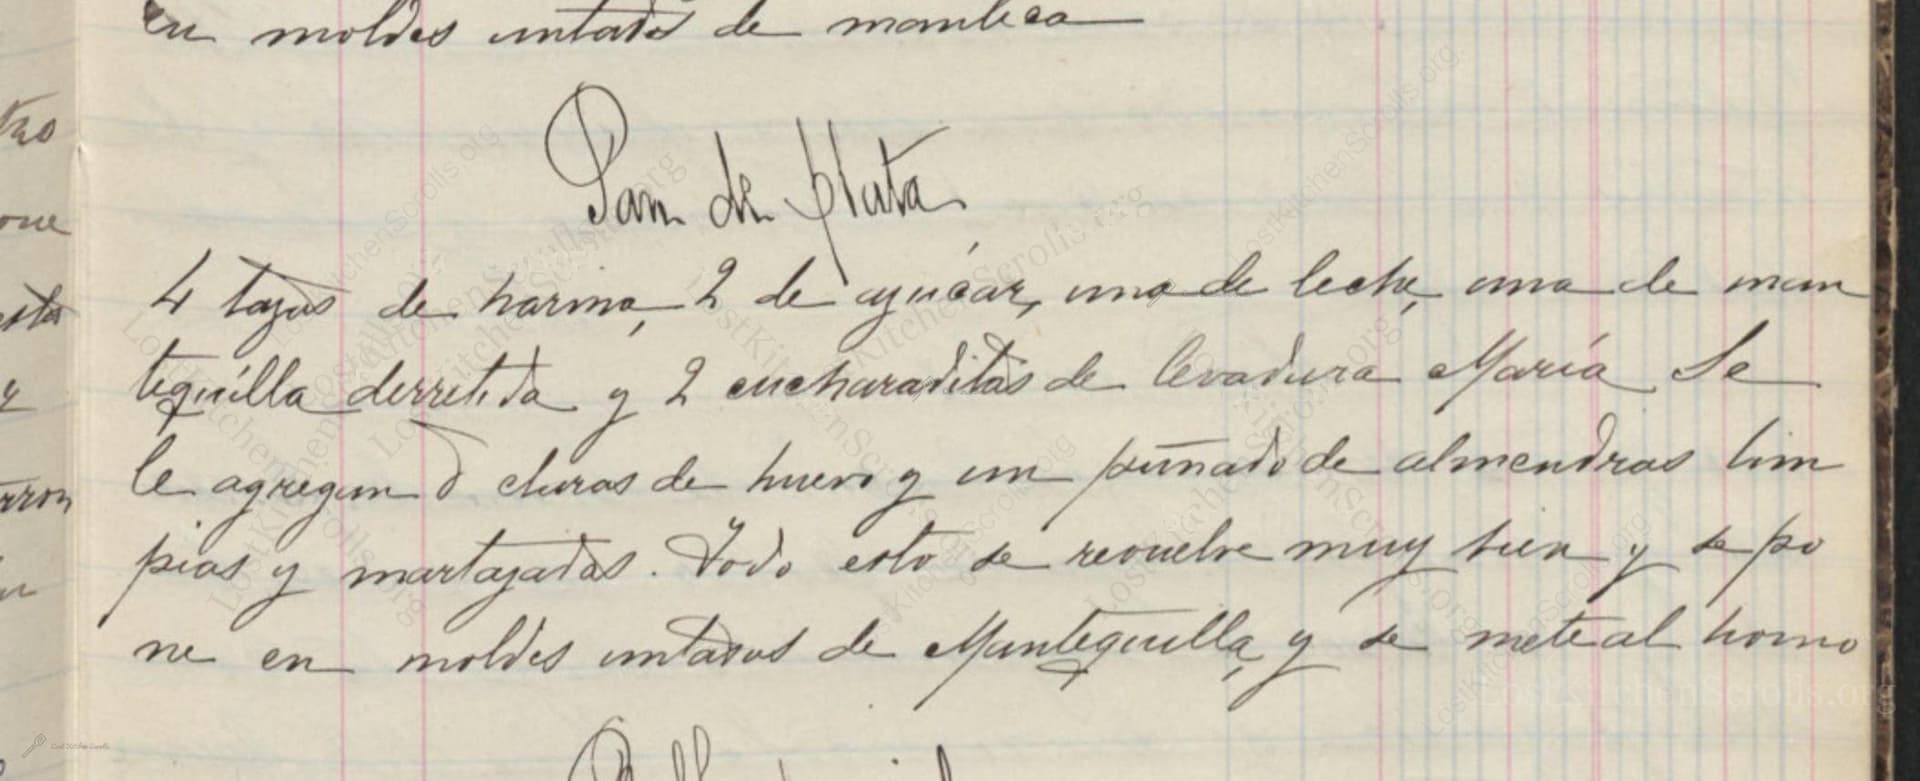 en moldes untados de manteca
Pan de Plata
4 tazas de harina, 2 de azúcar, una de leche, una de man
tequilla derretida y 2 cucharaditas de levadura María Se
le agregan claras de huevo y un puñado de almendras lim
pias y martajadas. Todo esto se revuelve muy bien y se po
ne en moldes untados de Mantequilla, y se mete al horno
LostKitchenScrolls.org